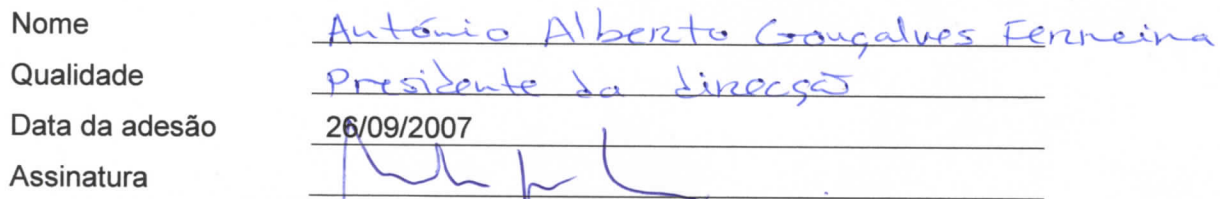 Nome António Alberto Gonçalves Ferreira
Qualidade Presidente da direcção
Data da adesão 26/09/2007
Assinatura